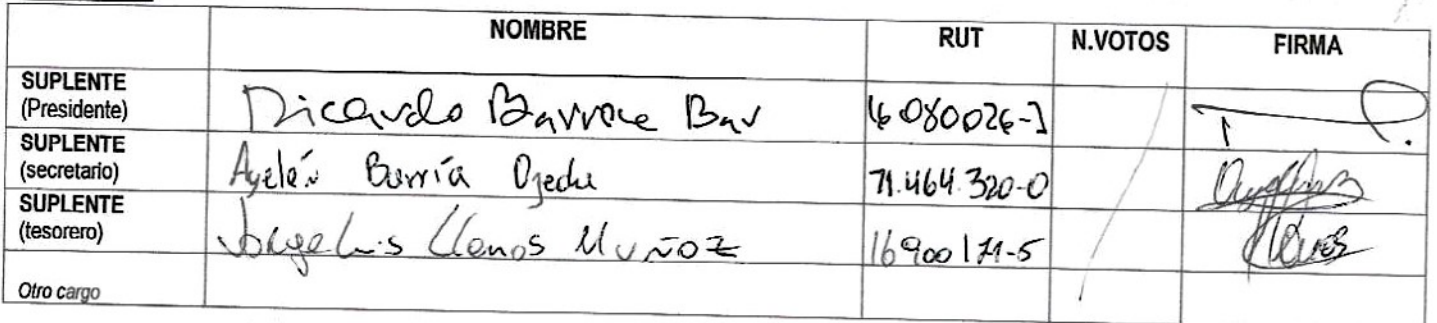 NOMBRE RUT N.VOTOS FIRMA
SUPLENTE
(Presidente) Ricardo Barrone Bar
SUPLENTE
(secretario) Ayelén Barría Ojeda 71.464.320-0
SUPLENTE
(tesorero) Jorge Luis Llanos MUÑOZ 16900171-5
Otro cargo